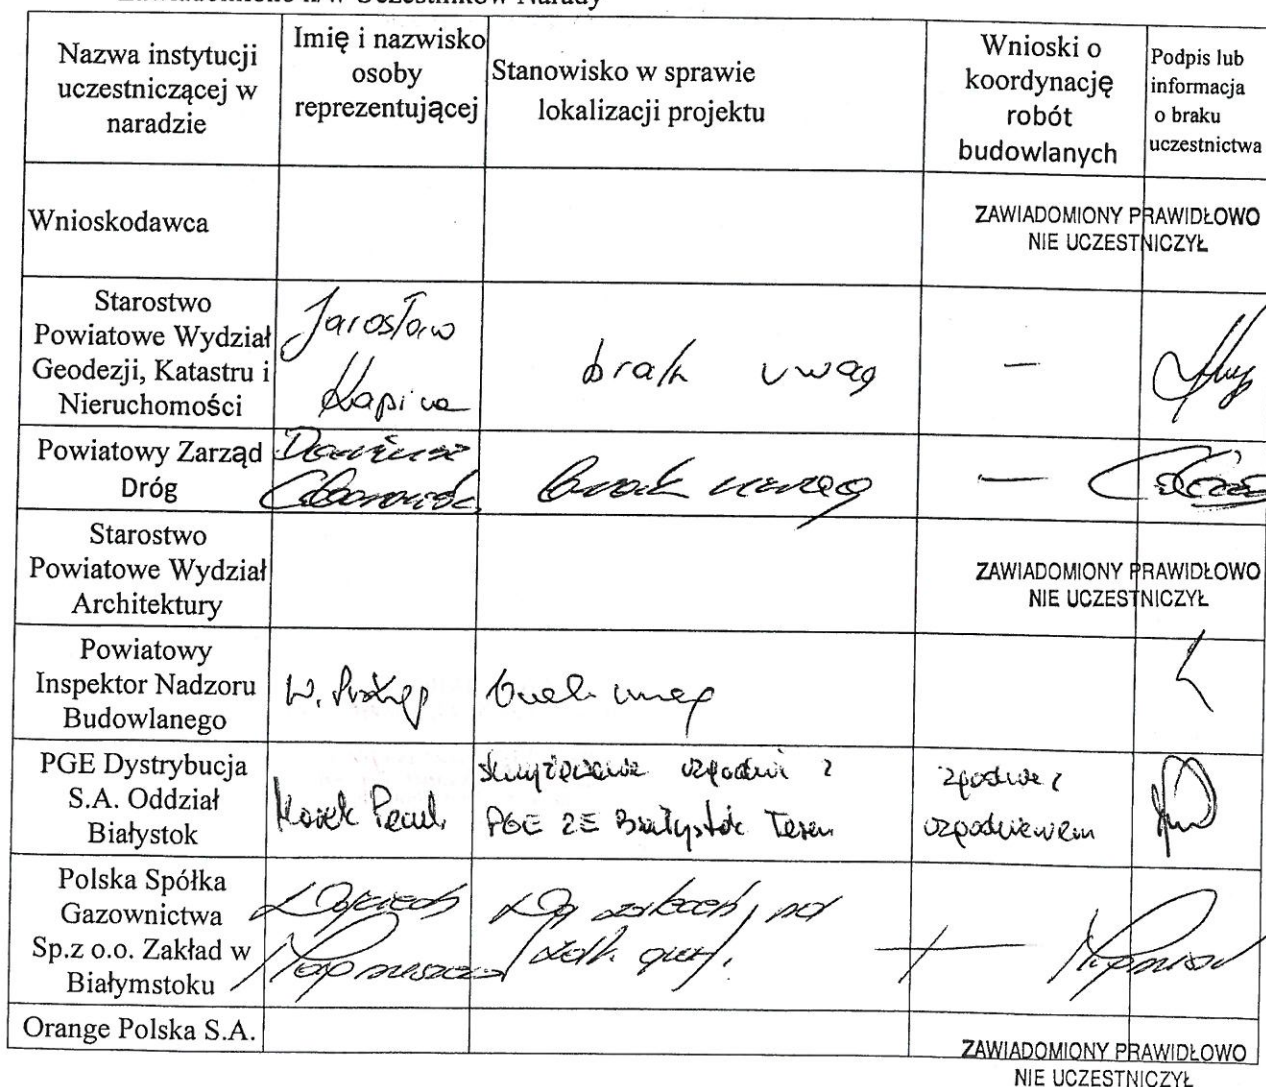 Zawiadomiono n/w Uczestników Narady
Nazwa instytucji
uczestniczącej w
naradzie
Imię i nazwisko
osoby
reprezentującej
Stanowisko w sprawie
lokalizacji projektu
Wnioski o
koordynację
robót
budowlanych
Podpis lub
informacja
o braku
uczestnictwa
Wnioskodawca
ZAWIADOMIONY PRAWIDŁOWO
NIE UCZESTNICZYŁ
Starostwo
Powiatowe Wydział
Geodezji, Katastru i
Nieruchomości
Jarosław
Kapica
brak uwag
—
Powiatowy Zarząd
Dróg
Dariusz
brak uwag
—
Starostwo
Powiatowe Wydział
Architektury
ZAWIADOMIONY PRAWIDŁOWO
NIE UCZESTNICZYŁ
Powiatowy
Inspektor Nadzoru
Budowlanego
W.
brak uwag
PGE Dystrybucja
S.A. Oddział
Białystok
Marek
skrzyżowanie uzgodnić z
PGE ZE Białystok Teren
zgodnie z
uzgodnieniem
Polska Spółka
Gazownictwa
Sp.z o.o. Zakład w
Białymstoku
Wojciech
Orange Polska S.A.
ZAWIADOMIONY PRAWIDŁOWO
NIE UCZESTNICZYŁ